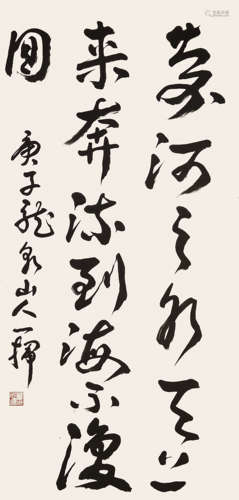 黄河之水天上
来奔流到海不复
回
庚子龙泉山人一挥